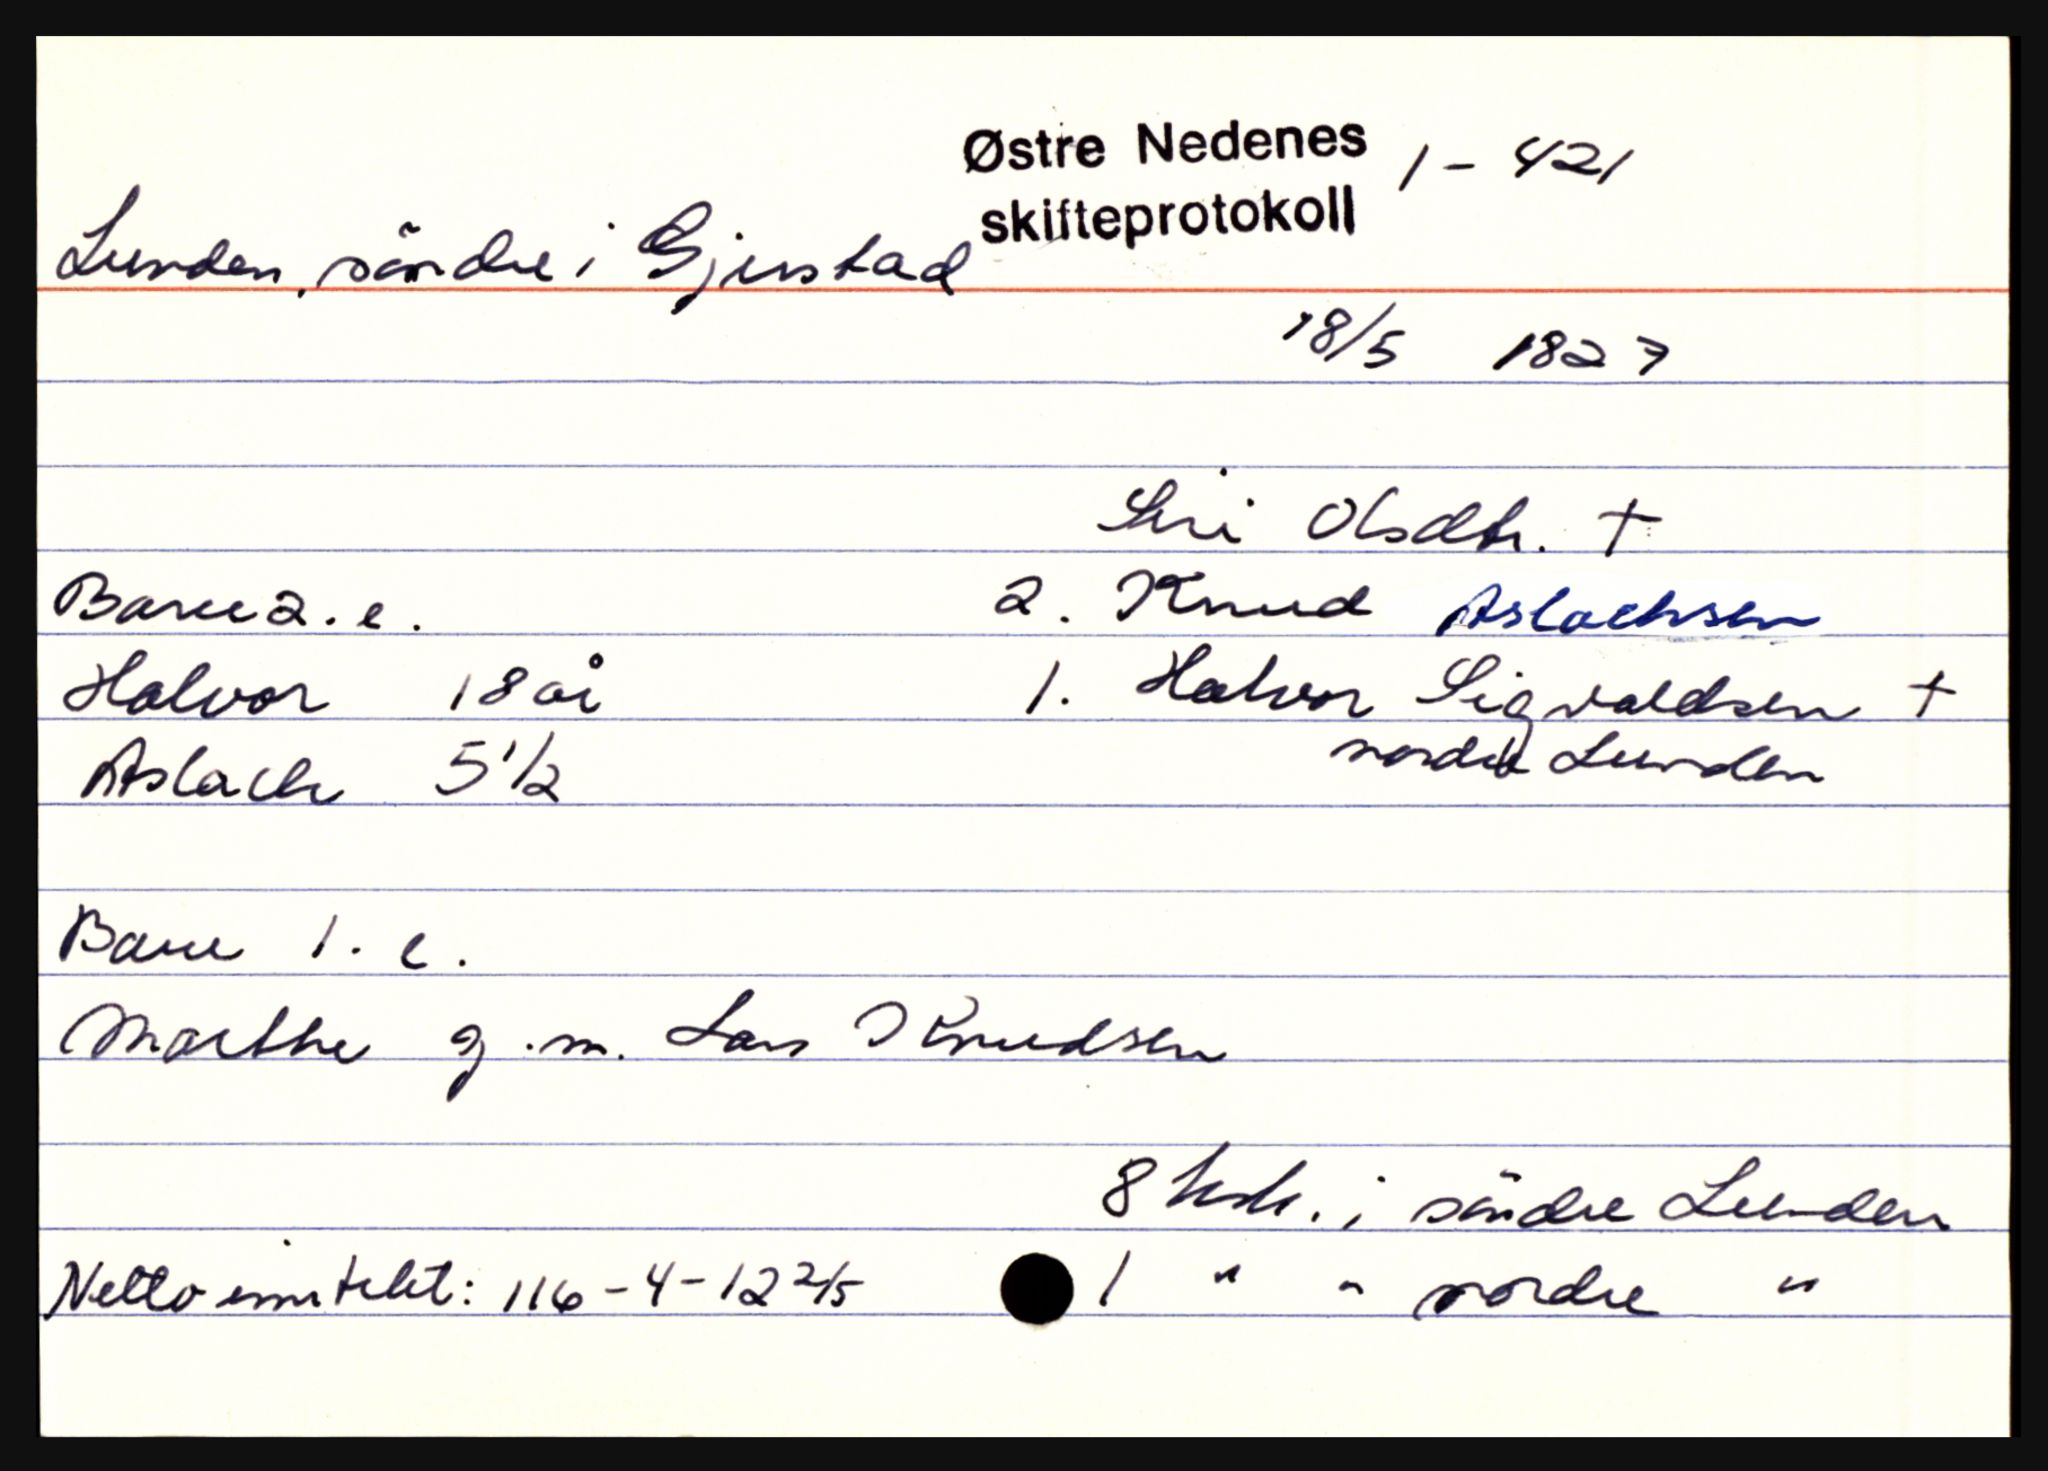 Østre Nedenes 1 - 421
skifteprotokoll
Lunden, söndre i Gjerstad
18/5 1827
Siri Olsdtr. †
Barn 2. e. 2. Knud Aslachsen
Halvor 18 år 1. Halvor Sigvaldsen †
Aslach 5 1/2 nordre Lunden
Barn 1. e.
Marthe g.m. Lars Knudsen
8 kskr. i söndre Lunden
Netto inntekt: 116-4-12 2/5 1 " " nordre "